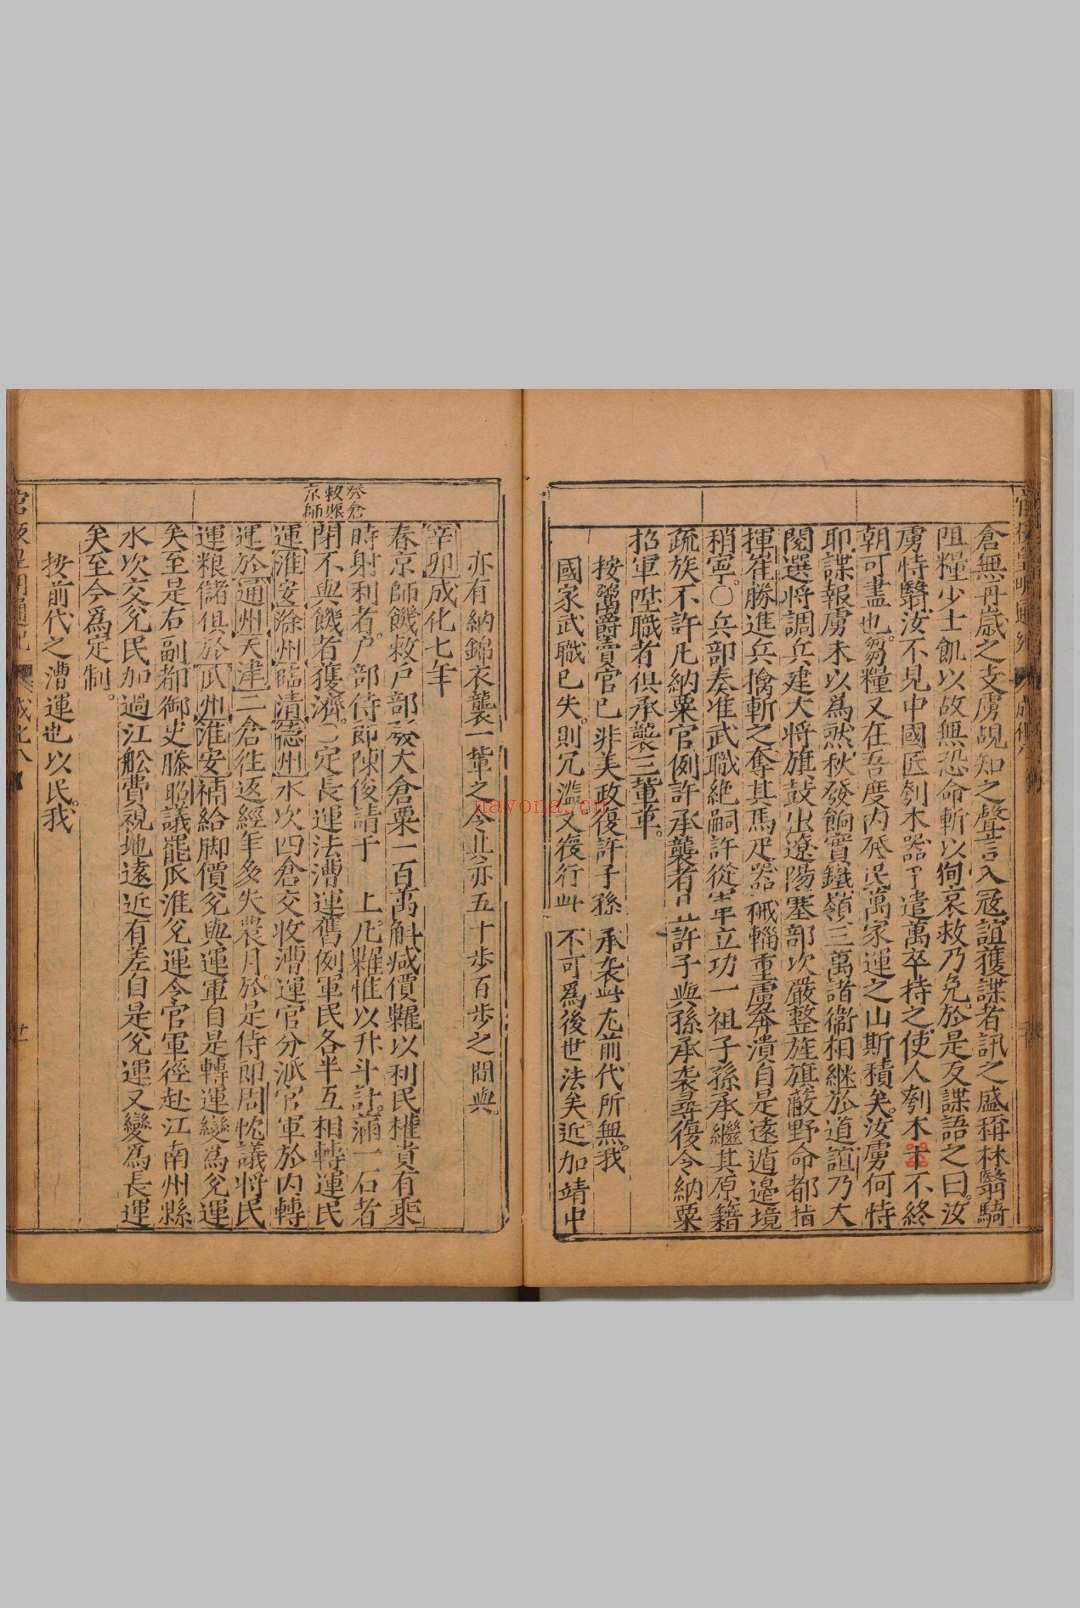 倉無丹歲之支虜覘知之聲言入冦誼獲諜者訊之盛稱林翳騎
阻糧少士飢以故無恐命斬以徇哀救乃免於是反諜語之曰汝
虜恃翳汝不見中國匠刳木器乎遣萬卒持之使人刳木 不終
朝可盡也芻糧又在吾度內 民萬家運之山斯積矣汝虜何恃
耶諜報虜未以為然秋發餉實鐵嶺三萬諸衞相継於道誼乃大
閱選將調兵建大將旗鼓出遼陽塞部次嚴整旌旗蔽野命都指
揮崔勝進兵擒斬之奪其馬疋器械輜重虜奔潰自是遠遁邉境
稍寧○兵部奏准武職絶嗣許從 軍立功一祖子孫承繼其原籍
疏族不許凡納粟官例許承襲者 止許子與孫承袭尋復令納粟
招軍陞職者俱承襲三軰率
按鬻爵賣官已非美政復許子孫承袭此尤前代所無我
國家武職已失則冗濫又復行此不可為後世法矣近加靖中
亦有納錦衣襲一軰之令此亦五十步百步之間與
發倉
救賑
京師
辛卯成化七年
春京師饑敕戸部發大倉粟一百萬斛减價糶以利民權貴有乘
時射利者戸部侍郎陳俊請于 上凢糶惟以升斗計滿一石者
閉不與饑者獲濟○定長運法漕運舊例軍民各半互相轉運民
運淮安滁州臨清德州水次四倉交收漕運官分派官軍於内轉
運於通州天津二倉往返經年多失農月於是侍郎周忱議將民
運粮儲俱於瓜州淮安補給脚價兌與運軍自是轉運變為兌運
矣至是右副都御史滕昭議罷瓜淮兌運令官軍徑赴江南州縣
水次交兌民加過江舩費視地遠近有差自是兌運又變為長運
矣至今為定制
按前代之漕運也以民我